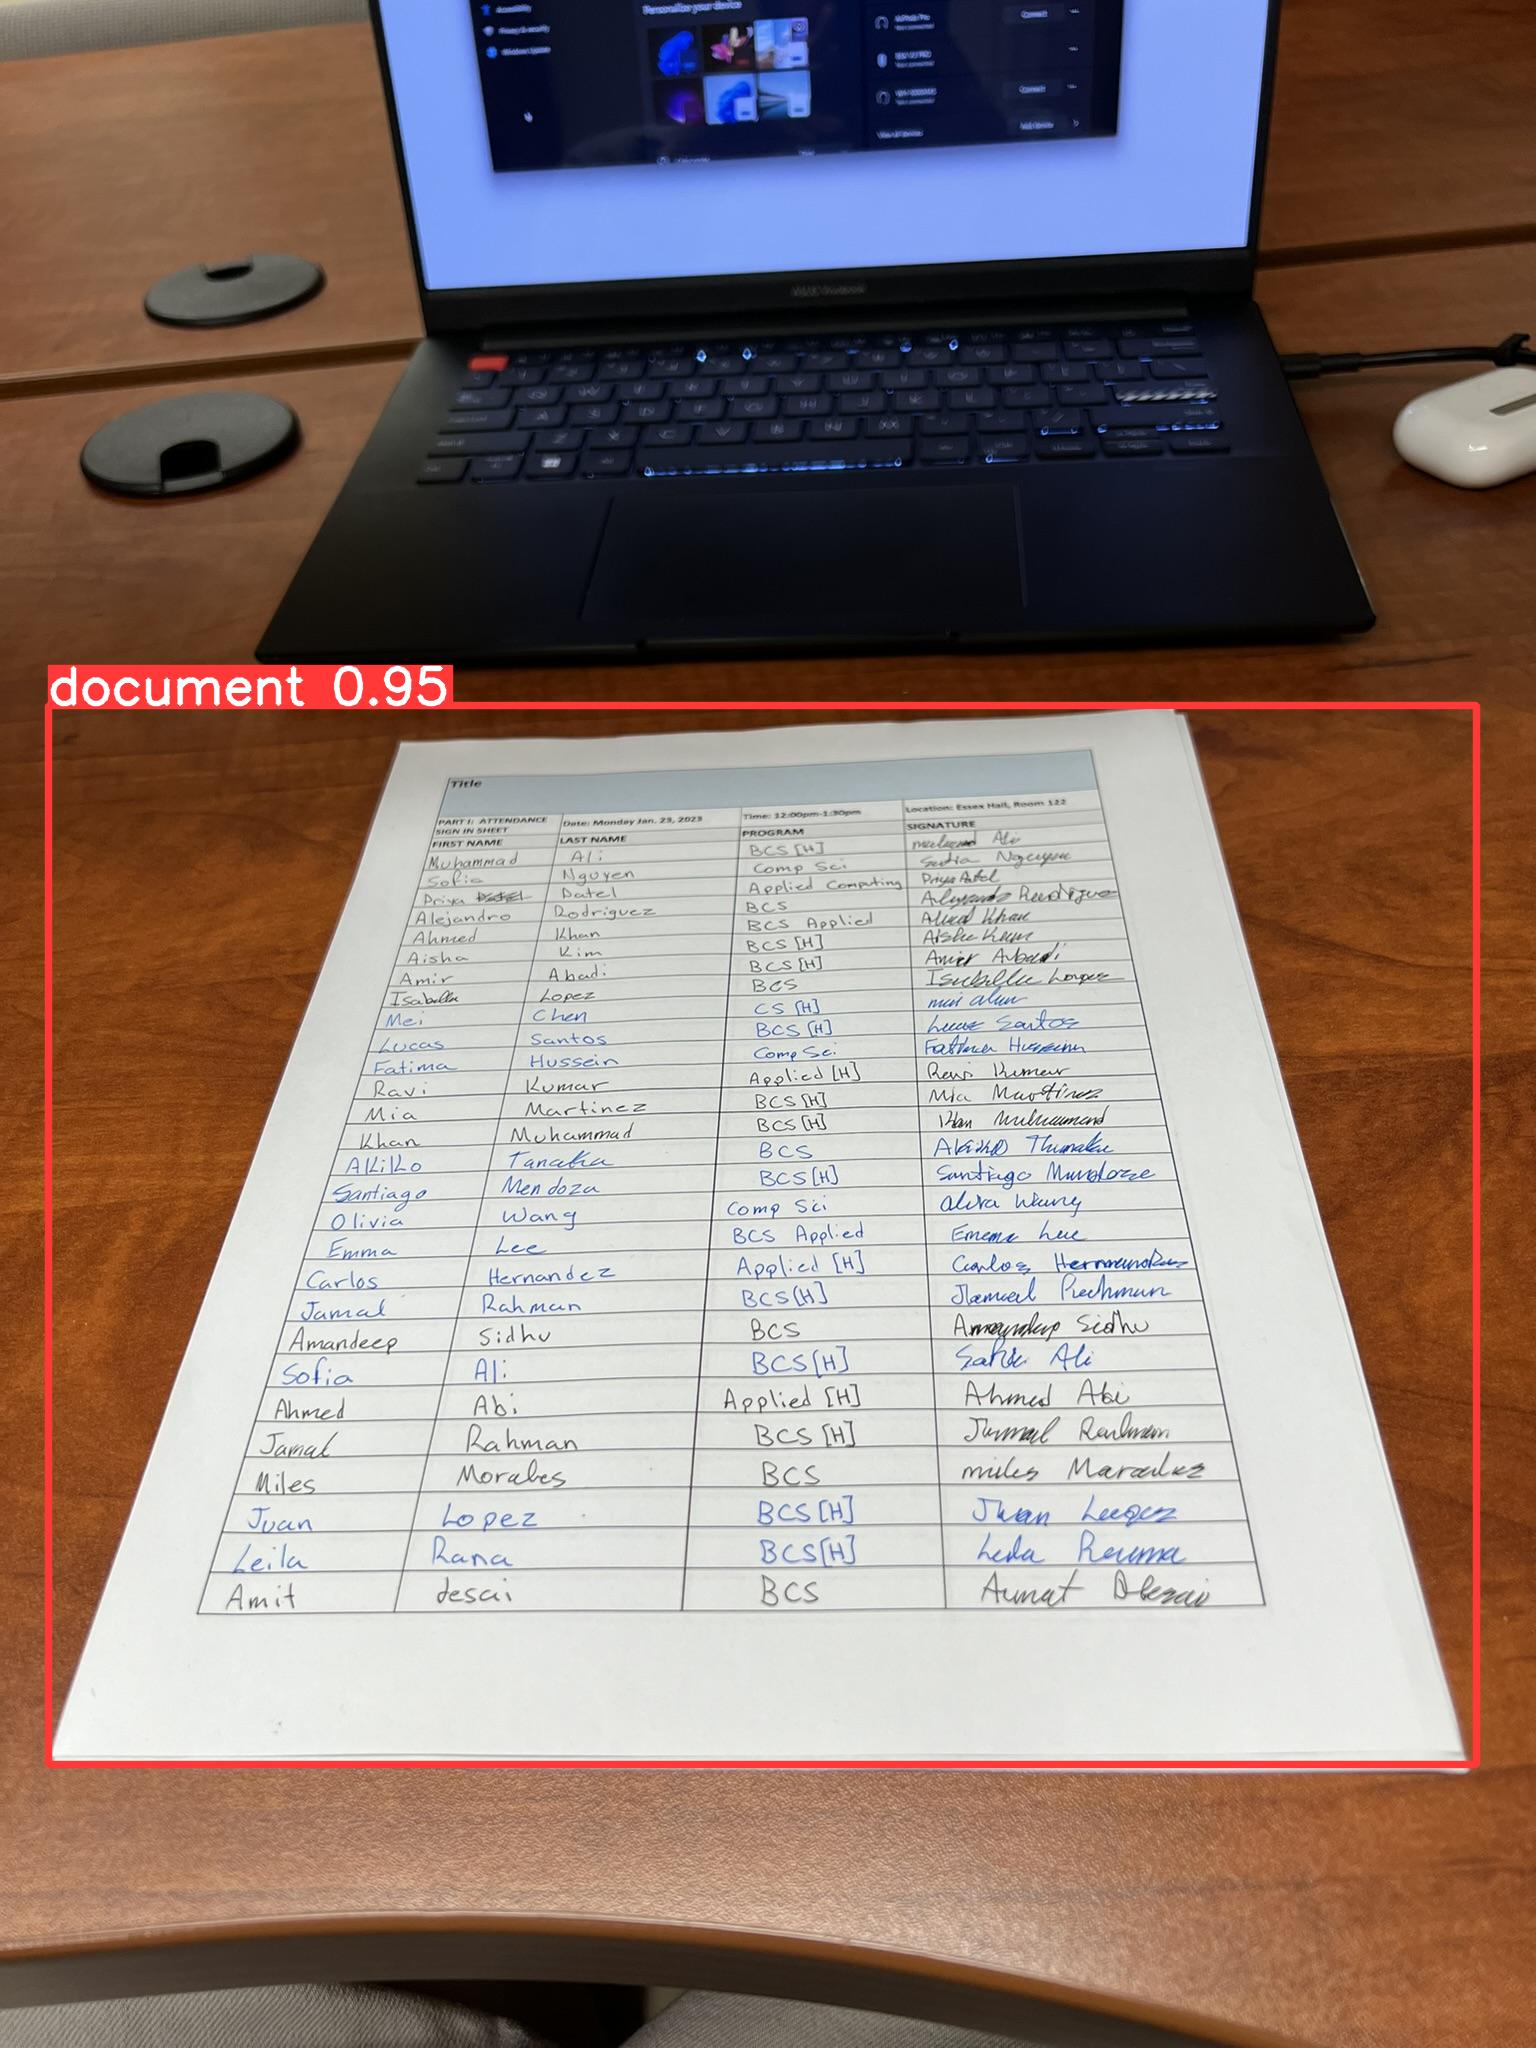 Accessibility
Personalize your device
AirPods Pro
Connect
Privacy & security
Windows Update
Connect
View all devices
document 0.95
Title
PART I: ATTENDANCE SIGN IN SHEET Date: Monday Jan. 23, 2023 Time: 12:00pm-1:30pm Location: Essex Hall, Room 122
FIRST NAME LAST NAME PROGRAM SIGNATURE
Muhammad Ali BCS [H] Ali
Sofia Nguyen Comp Sci Sofia Nguyen
Priya Patel Applied Computing Priya Patel
Alejandro Rodriguez BCS Alejandro Rodriguez
Ahmed Khan BCS Applied Ahmed Khan
Aisha Kim BCS [H] Aisha Kim
Amir Abadi BCS [H] Amir Abadi
Isabella Lopez BCS Isabella Lopez
Mei Chen CS [H]
Lucas Santos BCS [H] Lucas Santos
Fatima Hussein Comp Sci Fatima Hussein
Ravi Kumar Applied [H] Ravi Kumar
Mia Martinez BCS [H] Mia Martinez
Khan Muhammad BCS [H] Khan Muhammad
Akiko Tanaka BCS Akiko
Santiago Mendoza BCS [H] Santiago Mendoze
Olivia Wang Comp Sci Wang
Emma Lee BCS Applied Emema Lee
Carlos Hernandez Applied [H] Carlos Hernandez
Jamal Rahman BCS [H] Jamal Rahman
Amandeep Sidhu BCS Amandeep Sidhu
Sofia Ali BCS [H] Ali
Ahmed Abi Applied [H] Ahmed Abi
Jamal Rahman BCS [H] Jamal Rahman
Miles Morales BCS miles
Juan Lopez BCS [H] Juan
Leila Rana BCS [H] Leila
Amit desai BCS